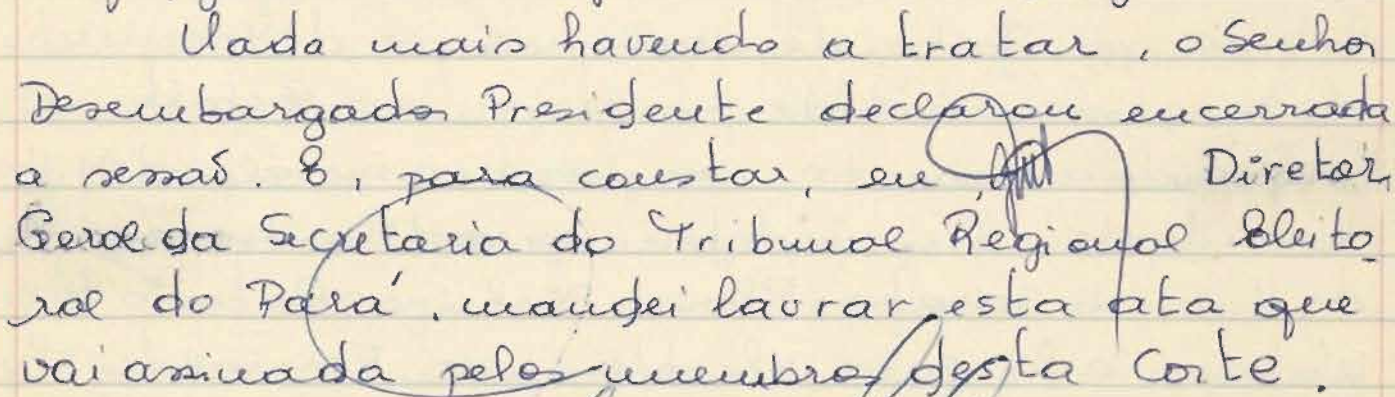 Nada mais havendo a tratar, o Senhor
Desembargador Presidente declarou encerrada
a sessão. E, para constar, eu, Diretor
Geral da Secretaria do Tribunal Regional Eleito
ral do Pará, mandei lavrar esta ata que
vai assinada pelos membros desta Corte.